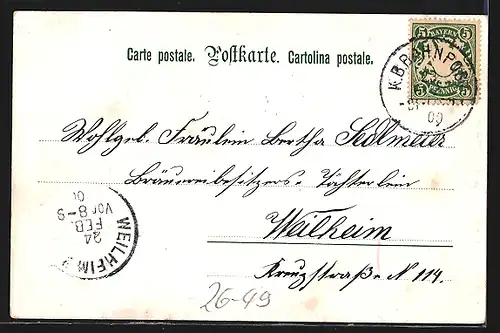 Carte postale. Postkarte. Cartolina postale.
BAYERN
5 5
PFENNIG
5 5
K.B.BAHNPOST
00
Wohlgeb. Fräulein Bertha Sedlmeier
Bräuereibesitzers-Töchterlein
Weilheim
Kreuzstraße N 114.
WEILHEIM
24
FEB.
Vor 8-9
26-49